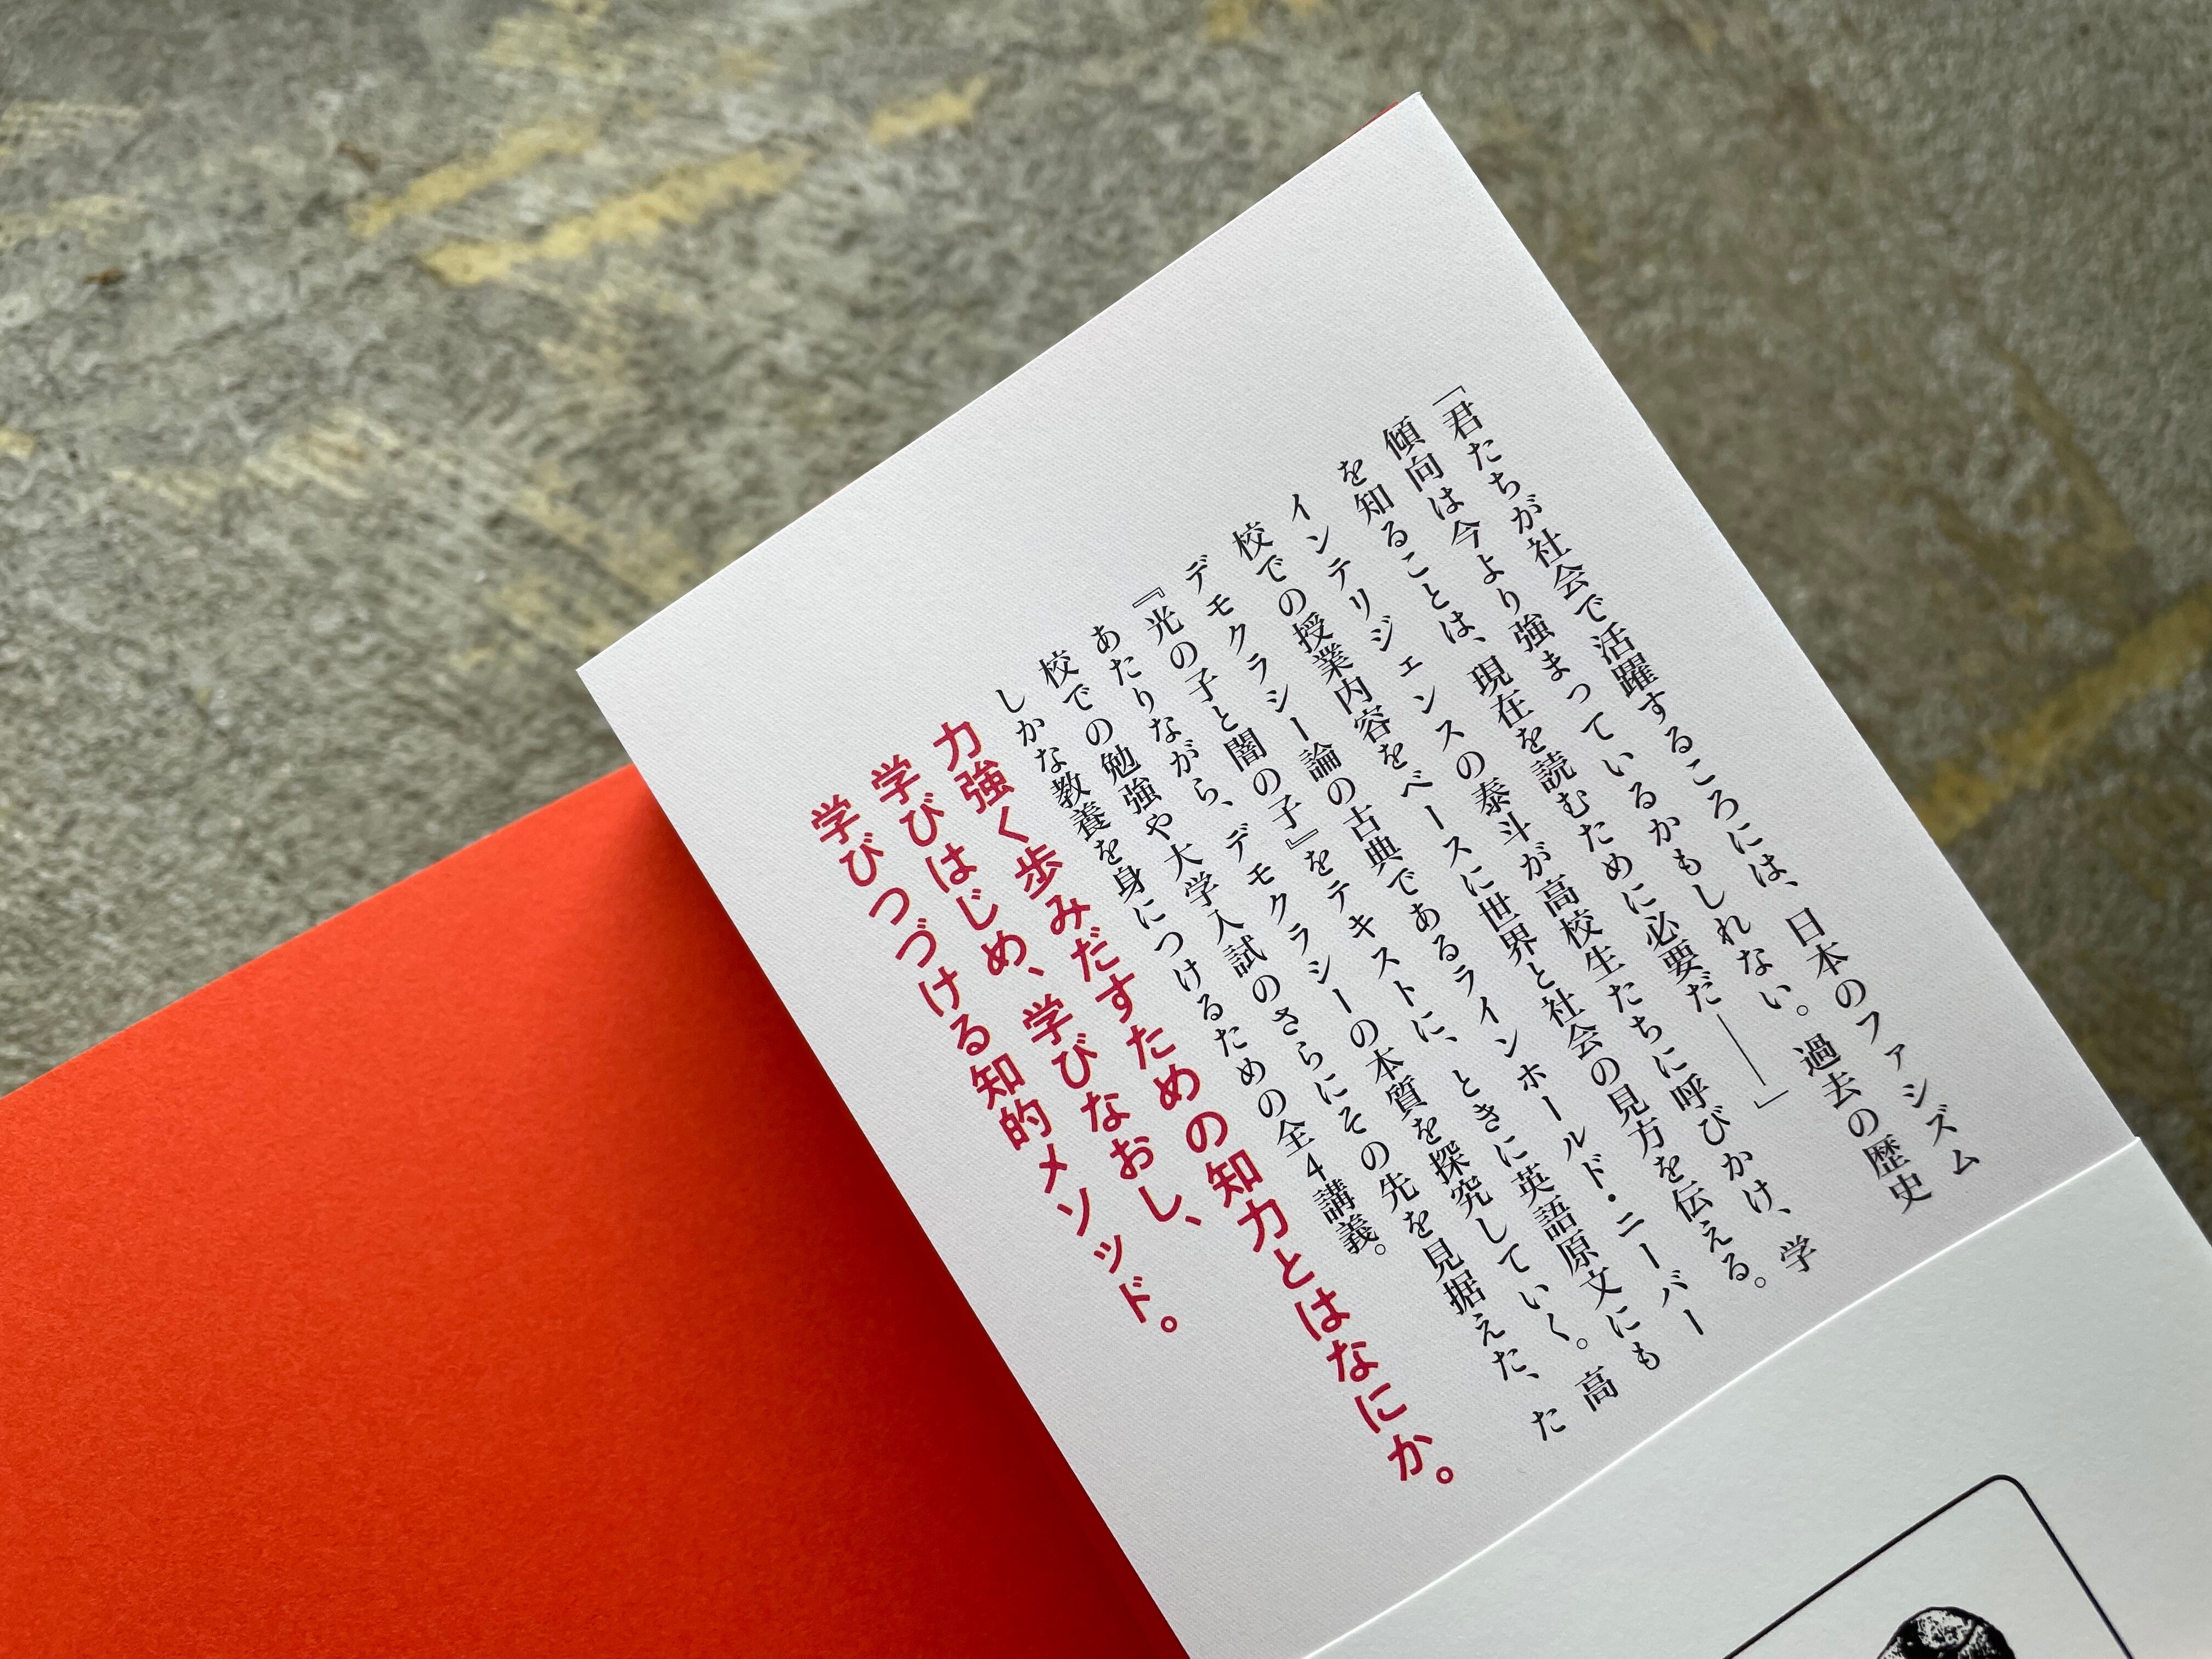 「君たちが社会で活躍するころには、日本のファシズム
傾向は今より強まっているかもしれない。過去の歴史
を知ることは、現在を読むために必要だ――」
インテリジェンスの泰斗が高校生たちに呼びかけ、学
校での授業内容をベースに世界と社会の見方を伝える。
デモクラシー論の古典であるラインホールド・ニーバー
『光の子と闇の子』をテキストに、ときに英語原文にも
あたりながら、デモクラシーの本質を探究していく。高
校での勉強や大学入試のさらにその先を見据えた、た
しかな教養を身につけるための全4講義。
力強く歩みだすための知力とはなにか。
学びはじめ、学びなおし、
学びつづける知的メソッド。